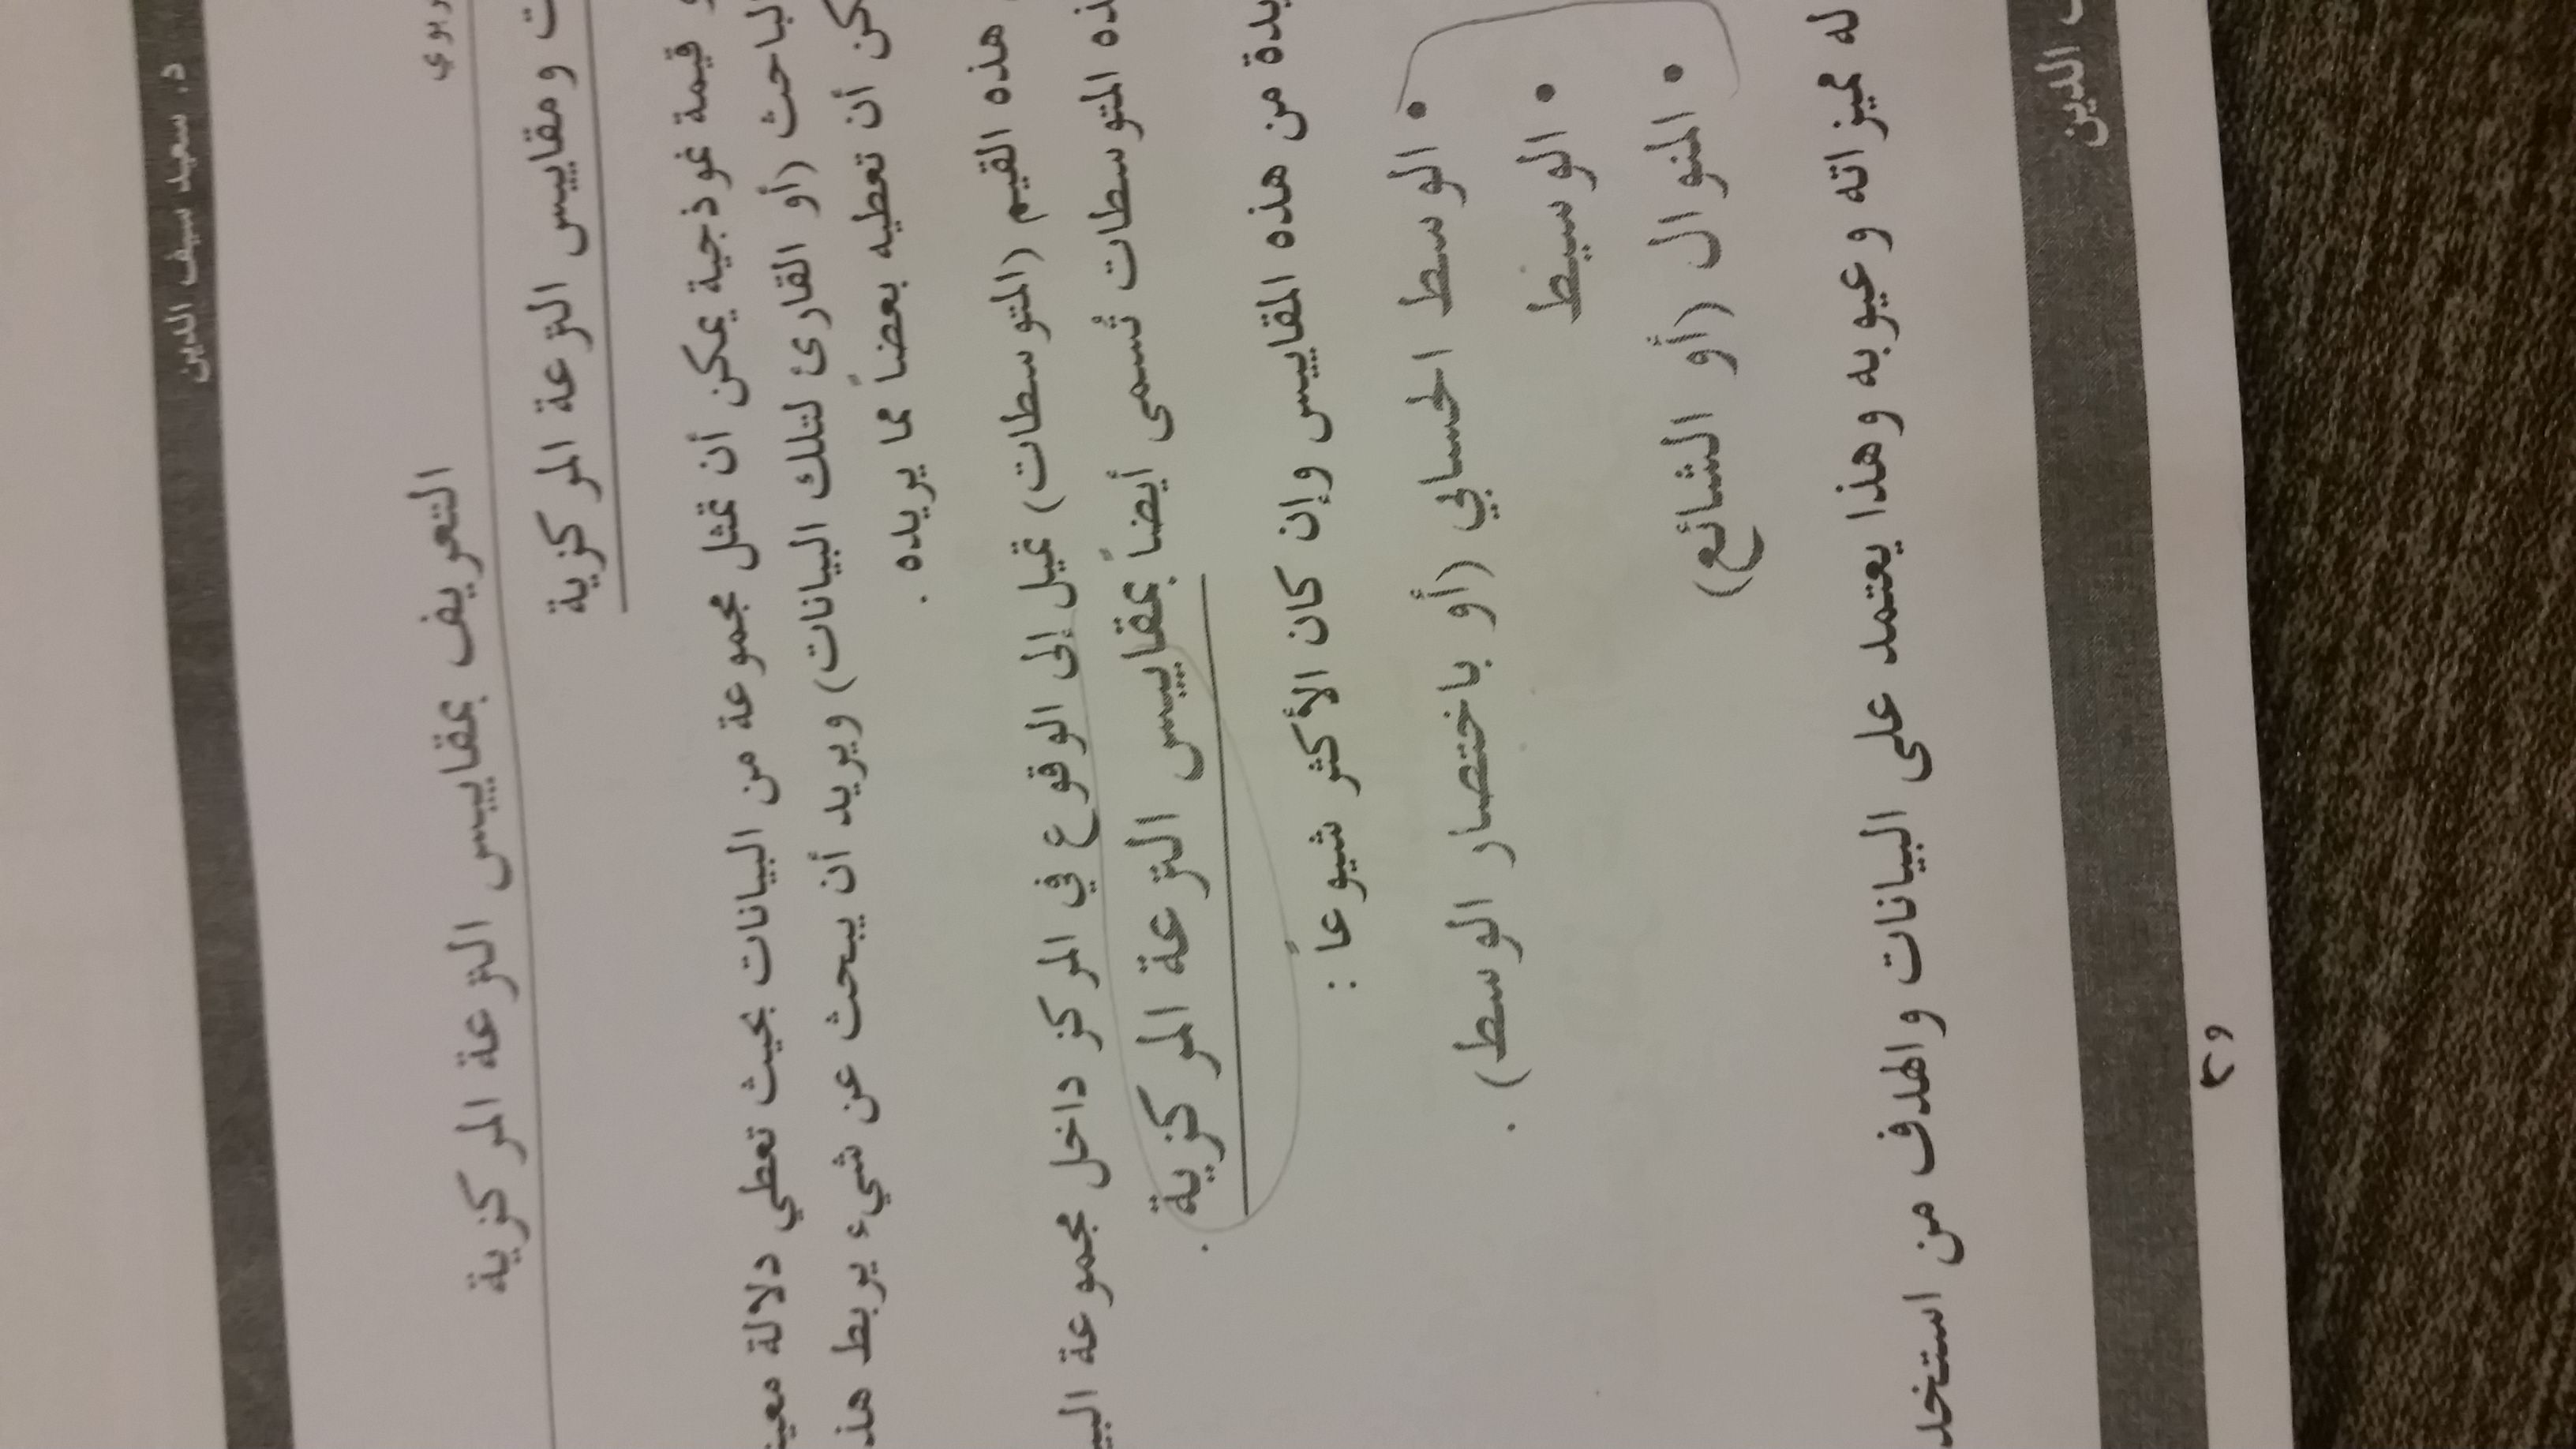 د. سعيد سيف الدين
التعريف بمقاييس النزعة المركزية
ومقاييس النزعة المركزية
قيمة نموذجية يمكن أن تمثل مجموعة من البيانات بحيث تعطي دلالة
الباحث (أو القارئ لتلك البيانات) ويريد أن يبحث عن شيء يربط
أن تعطيه بعضاً مما يريده .
هذه القيم (المتوسطات) تميل إلى الوقوع في المركز داخل مجموعة
المتوسطات تُسمى أيضاً بمقاييس النزعة المركزية .
من هذه المقاييس وإن كان الأكثر شيوعاً :
• الوسط الحسابي (أو باختصار الوسط) .
• الوسيط
• المنوال (أو الشائع)
له مميزاته وعيوبه وهذا يعتمد على البيانات والهدف من
الدين